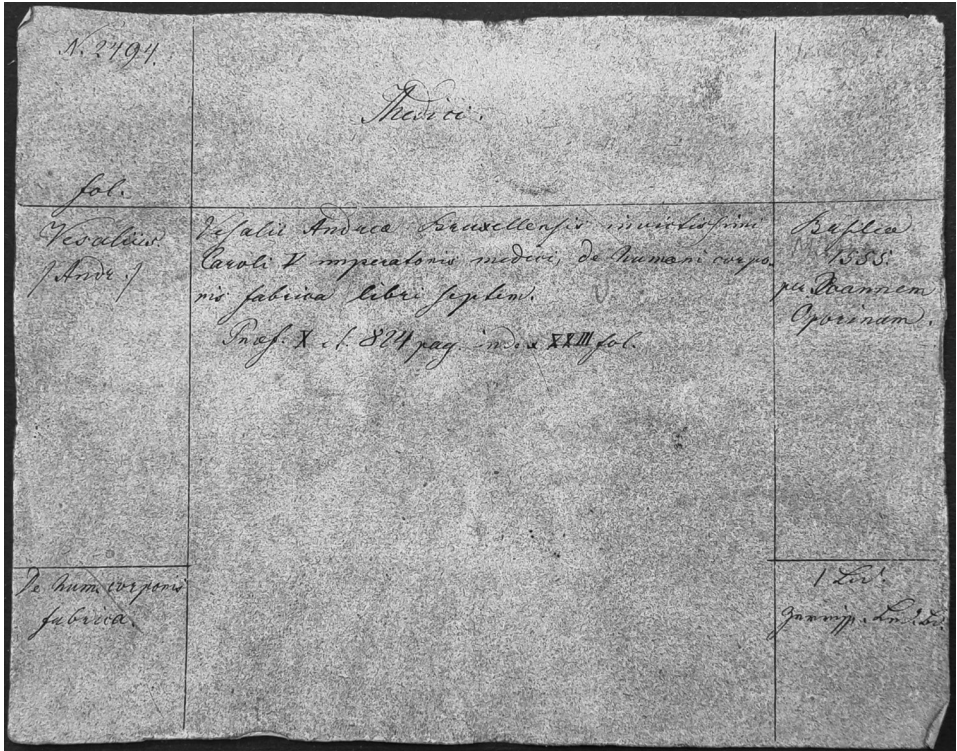 N. 2494.
Medici.
fol.
Vesalius
(Andr.)
Vesalii Andreæ Bruxellensis invictissimi
Caroli V imperatoris medici, de humani corpo-
ris fabrica libri septem.
Præf. X et 824 pag. index XXIII fol.
Basileæ
1555.
per Joannem
Oporinum.
De hum. corporis
fabrica.
1